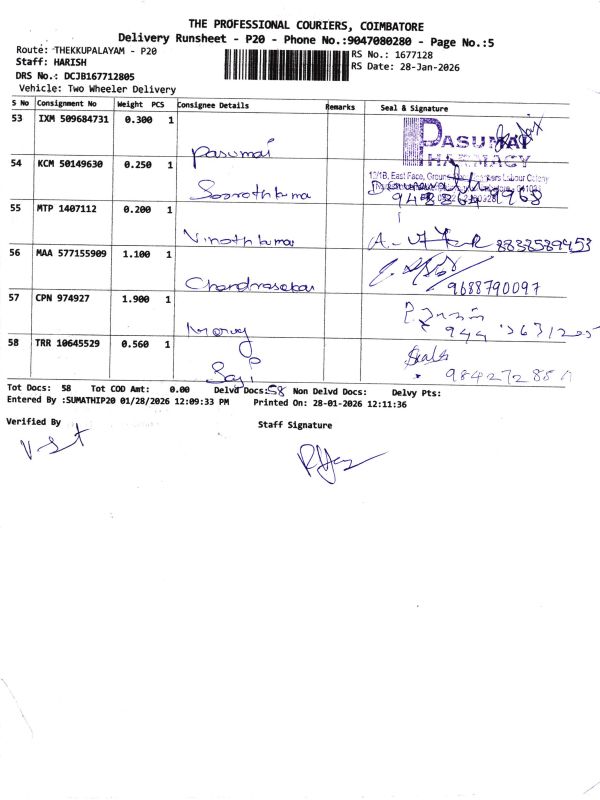 THE PROFESSIONAL COURIERS, COIMBATORE
Delivery Runsheet - P20 - Phone No.:9047080280 - Page No.:5
Route: THEKKUPALAYAM - P20
RS No.: 1677128
Staff: HARISH
RS Date: 28-Jan-2026
DRS No.: DCJB167712805
Vehicle: Two Wheeler Delivery
S No Consignment No Weight PCS Consignee Details Remarks Seal & Signature
53 IXM 509684731 0.300 1
Pasumai
PASUMAI
PHARMACY
54 KCM 50149630 0.250 1
12/1B, East Face, Labour Colony
55 MTP 1407112 0.200 1
Vinothkumar 8838589453
56 MAA 577155909 1.100 1
Chandrasekar 9688790097
57 CPN 974927 1.900 1
58 TRR 10645529 0.560 1
Saji
Tot Docs: 58 Tot COD Amt: 0.00 Delvd Docs:58 Non Delvd Docs: Delvy Pts:
Entered By :SUMATHIP20 01/28/2026 12:09:33 PM Printed On: 28-01-2026 12:11:36
Verified By
Staff Signature